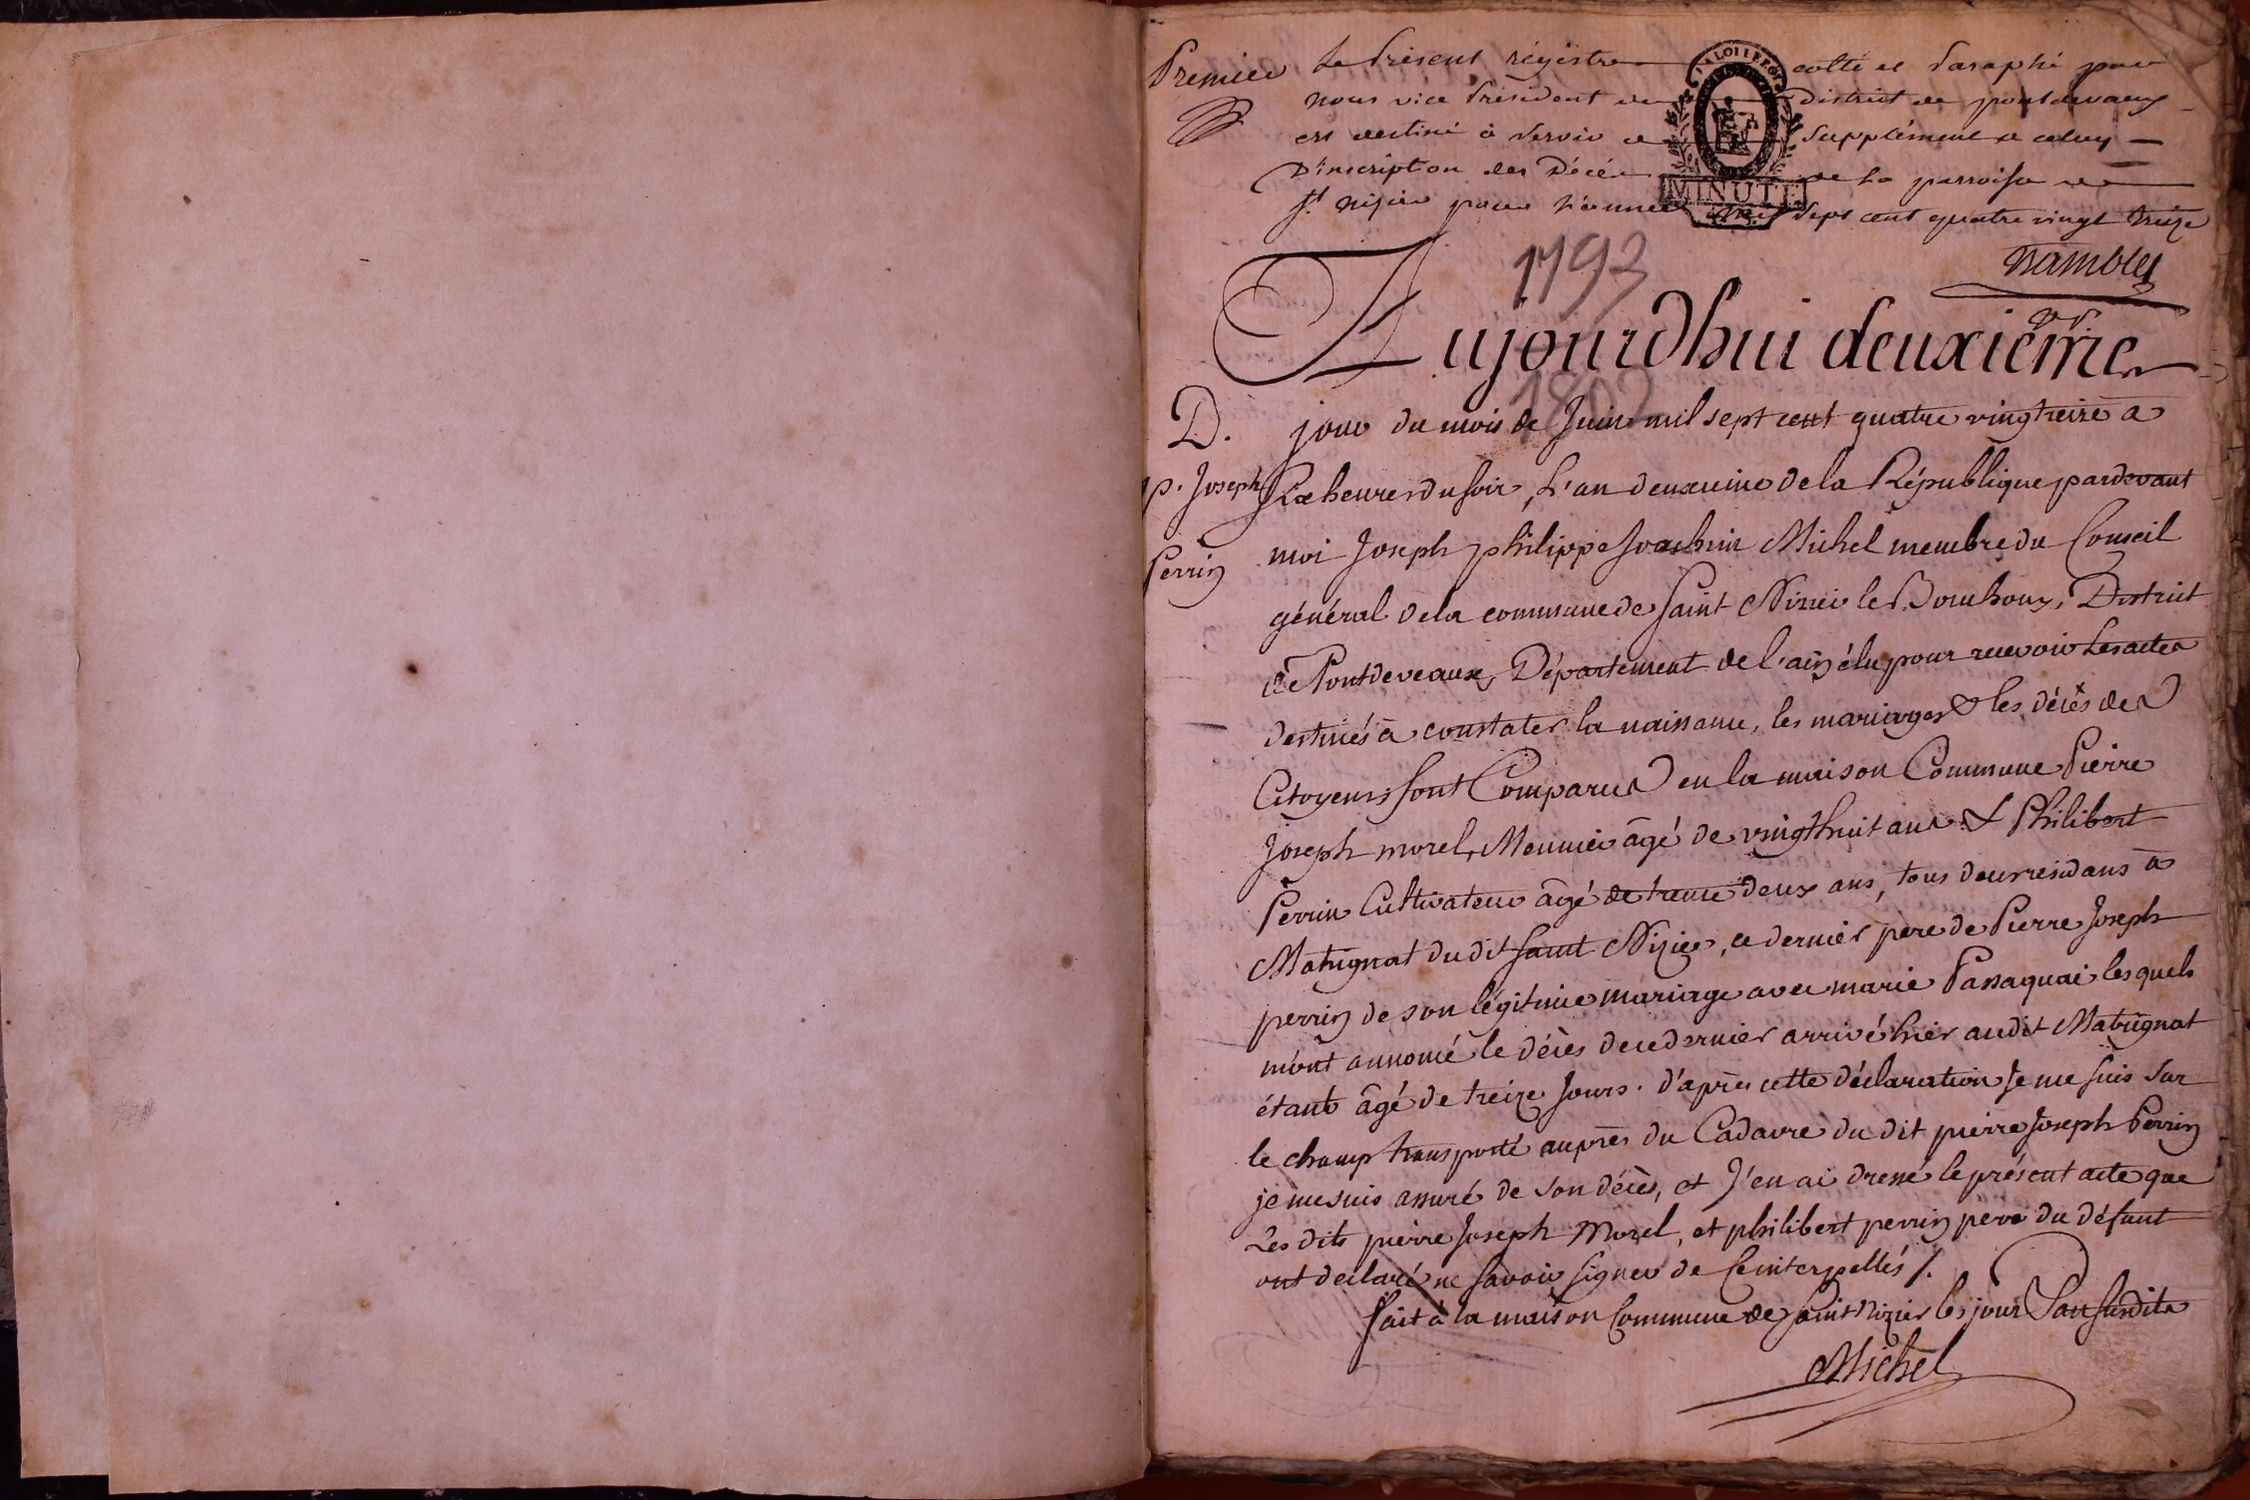 Premier
Le présent régistre cotté et paraphé par
nous vice président du district de pontdevaux
est destiné à servir de supplément a celuy
D'inscription des Décès de la parroisse de
St. nizier pour l'année mil sept cent quatre vingt treize
LA LOI LE ROI
MINUTE
1793
Aujourdhui deuxième
1802
D.
p. Joseph
Perrin
jour du mois de Juin mil sept cent quatre vingtreize a
Six heures du soir, L'an deuxieme de la République pardevant
moi Joseph philippe Joachim Michel membre du Conseil
général de la commune de Saint Nizier le Bouchoux, District
de Pontdeveaux, Département de l'ain élu pour recevoir les actes
destinés à constater la naissance, les mariages & les décès des
Citoyens, sont Comparus en la maison Commune Pierre
Joseph morel, Meunier âgé de vingthuit ans & Philibert
Perrin Cultivateur âgé de trente deux ans, tous deux residans à
Matrignat du dit Saint Nizier, ce dernier pere de Pierre Joseph
perrin de son légitime mariage avec marie Passaquai lesquels
m'ont annoncé le décès de ce dernier arrivé hier audit Matrignat
étant âgé de treize Jours. d'après cette déclaration Je me suis sur
le champ transporté auprès du Cadavre du dit pierre Joseph Perrin
je me suis assuré de son décès, et J'en ai dressé le présent acte que
Les dits pierre Joseph Morel, et philibert perrin pere du défunt
ont declaré ne savoir signer de Ce interpellés /.
fait à la maison Commune de Saint Nizier les jour & an susdits
Michel